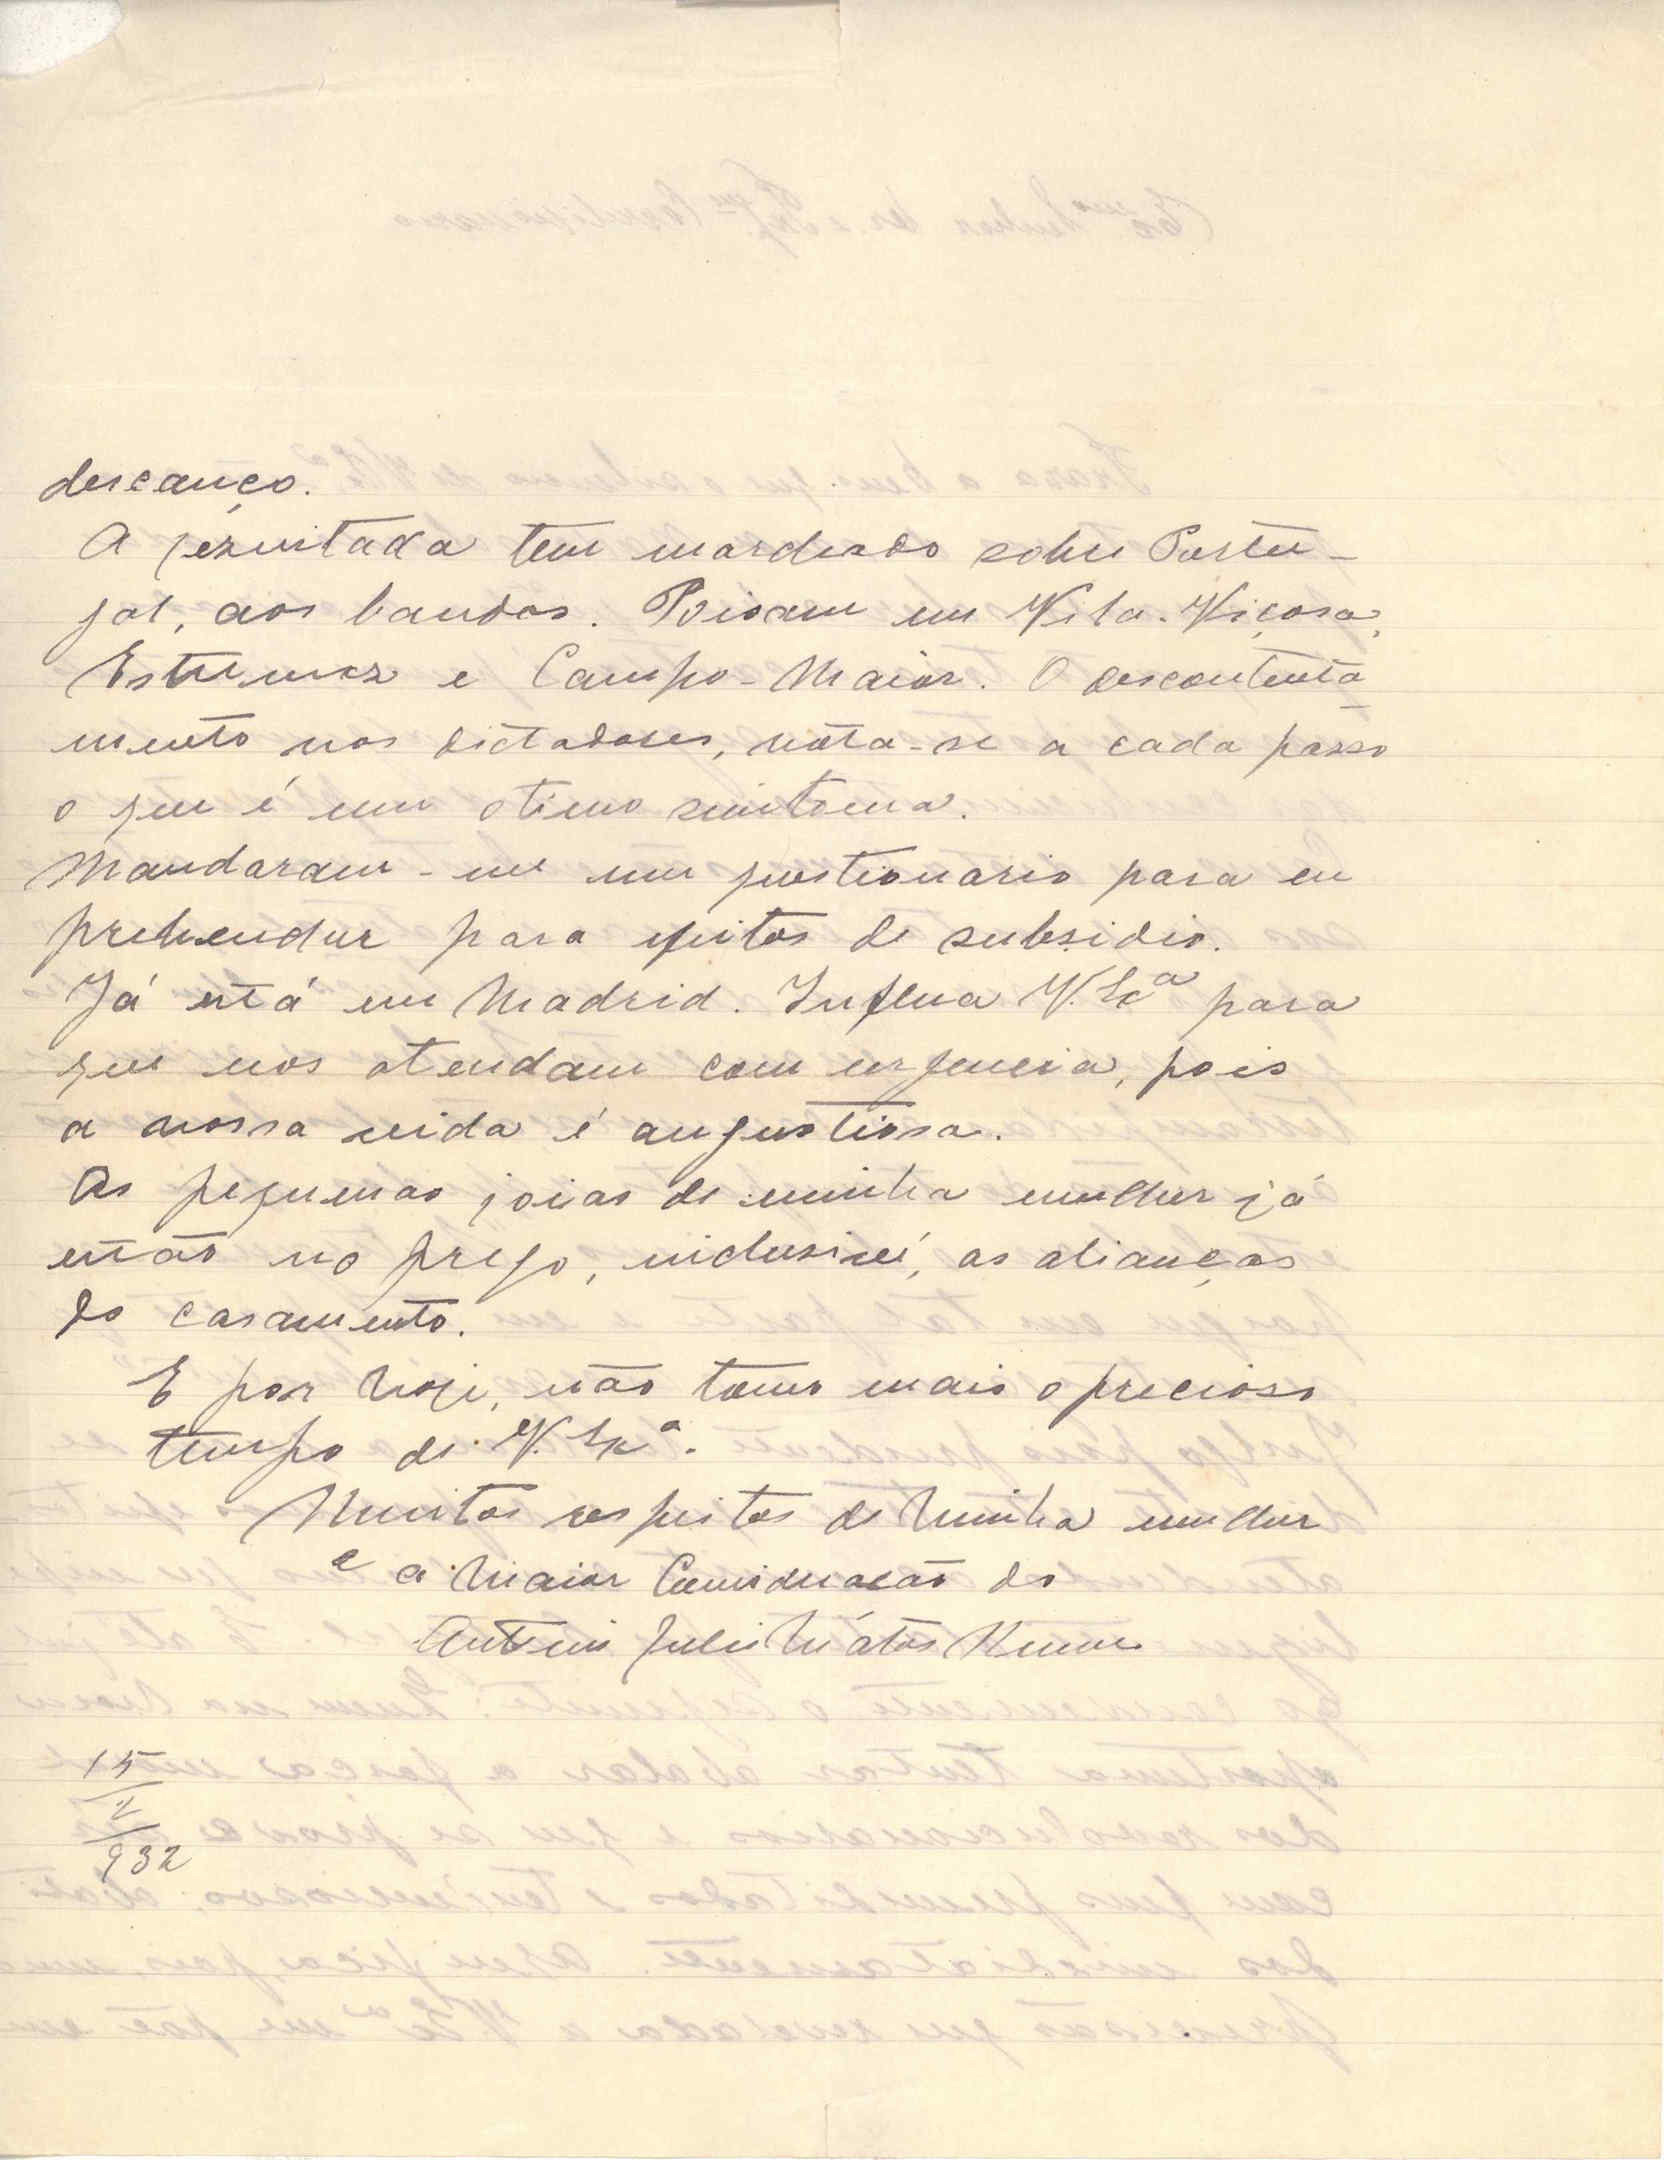 descanço.
A jézuitada tem marchado sobre Portu-
gal, aos bandos. Poisam em Vila-Viçosa,
Estremoz e Campo-Maior. O descontenta
mento nos dictadores, nota-se a cada passo
o que é um otimo sintoma.
Mandaram-me um questionario para eu
prehencher para efeitos de subsidio.
Já está em Madrid. Influa V. Exª para
que nos atendam com urgencia, pois
a nossa vida é angustiosa.
As pequenas joias de minha mulher já
estão no prego, inclusivé, as alianças
do casamento.
E por hoje, não tomo mais o precioso
tempo de V. Exª.
Muitos respeitos de minha mulher
e a maior consideração do
Antonio Julio Mátos
15
2
932